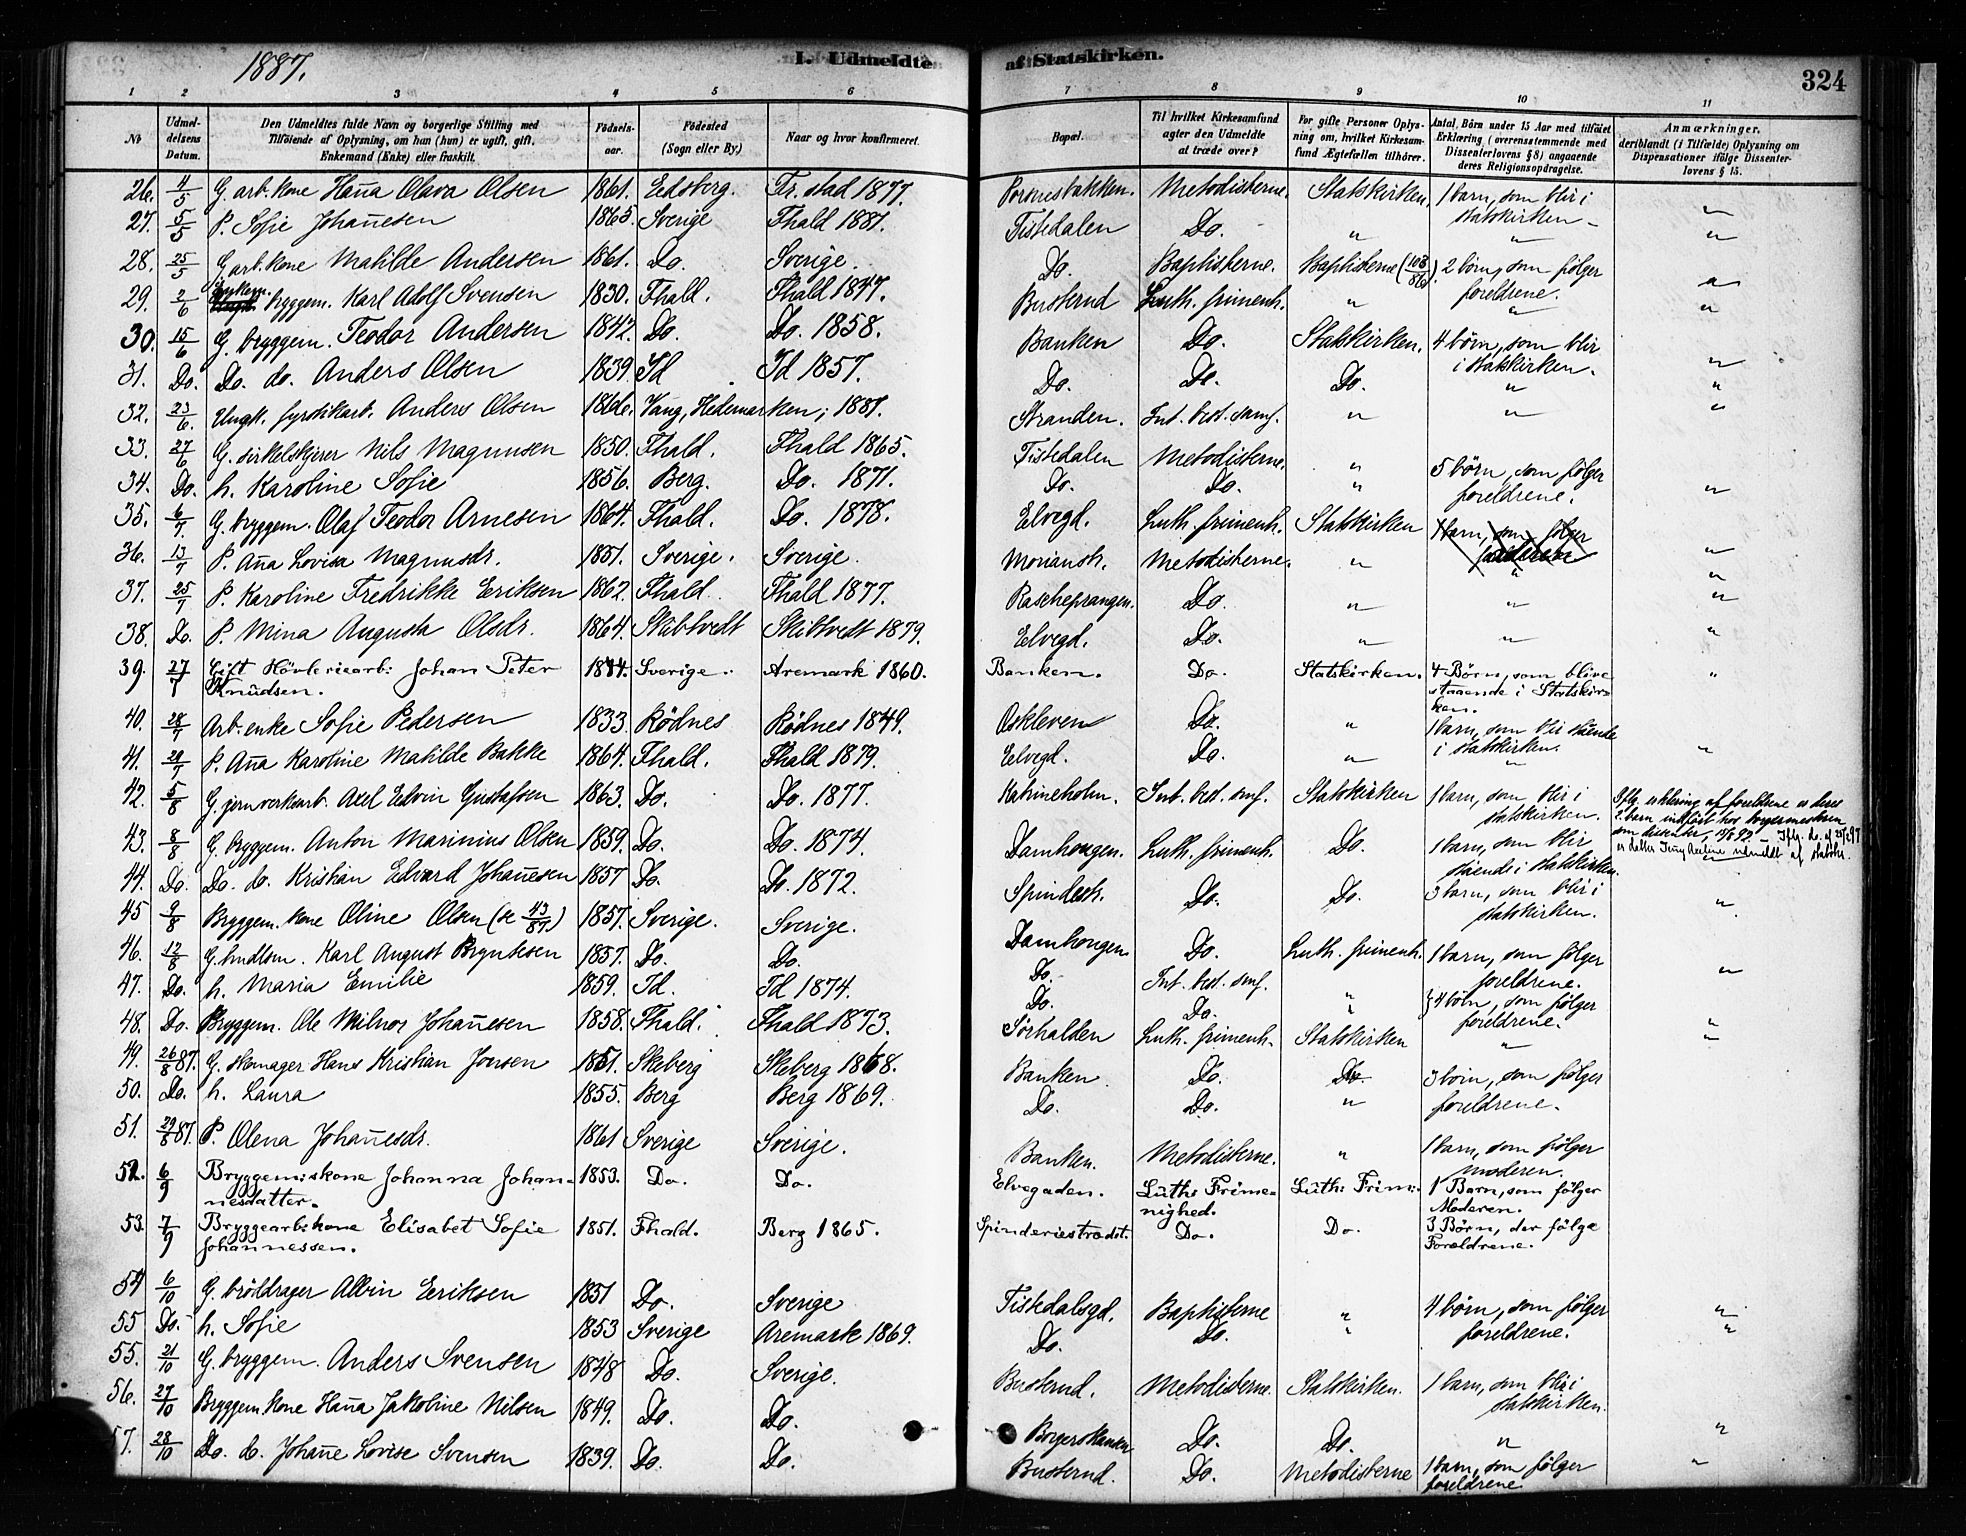 1887.
I. Udmeldte
af Statskirken.
324
1 2 3 4 5 6 7 8 9 10 11
No
Udmeldelsens Datum.
Den Udmeldtes fulde Navn og borgerlige Stilling med Tilföiende af Oplysning, om han (hun) er ugift, gift, Enkemand (Enke) eller fraskilt.
Födselsaar.
Födested (Sogn eller By.)
Naar og hvor konfirmeret.
Bopæl.
Til hvilket Kirkesamfund agter den Udmeldte at træde over?
For gifte Personer Oplysning om, hvilket Kirkesamfund Ægtefællen tilhörer.
Antal Börn under 15 Aar med tilföiet Erklæring (overensstemmende med Dissenterlovens § 8) angaaende deres Religionsopdragelse.
Anmærkninger, deriblandt (i Tilfælde) Oplysning om Dispensationer ifölge Dissenterlovens § 15.
26. 4/5 G. arb. kone Hanna Olava Olsen 1861. Edsberg. Fr.stad 1877. Metodisterne. Statskirken. 1 barn, som blir i statskirken. "
27. 5/5 P. Sofie Johannesen 1865. Sverige Fhald 1881. Tistedalen Do. " " "
28. 25/5 G. arb. kone Matilde Andersen 1861. Do. Sverige. Do. Baptisterne. Baptisterne (108/86). 2 børn, som følger foreldrene. "
29. 2/6 Enkem. bryggem. Karl Adolf Svensen 1830. Fhald. Fhald 1847. Busterud Luth. frimenh. " " "
30. 15/6 G. bryggem. Teodor Andersen 1842. Do. Do. 1858. Banken Do. Statskirken. 4 børn, som blir i statskirken. "
31. Do. Do. do. Anders Olsen 1839. Id Id 1857. Do. Do. Do. " "
32. 23/6 Ungk. fyrstikarb. Anders Olsen 1866. Vang, Hedemarken; 1881. Stranden. Int. best. samf. " " "
33. 27/6 G. sirkelskjærer Nils Magnusen 1850. Fhald. Fhald 1865. Tistedalen Metodisterne. " 5 børn, som følger foreldrene.
34. Do. h. Karoline Sofie 1856. Berg. Do. 1871. Do. Do. " "
35. 6/7 G. bryggem. Olaf Teodor Arnesen 1864. Fhald. Do. 1878. Elvegd. Luth. frimenh. Statskirken 1 barn, som følger
36. 13/7 P. Anna Lovisa Magnusdr. 1851. Sverige. Sverige. Moriansk. Metodisterne. " " "
37. 25/7 P. Karoline Fredrikke Eriksen 1862. Fhald. Fhald 1877. Rascheprangen. Do. " " "
38. Do. P. Mina Augusta Olsdr. 1864. Skibtvedt Skibtvedt 1879. Elvegd. Do. " " "
39. 27/7 Gift Hövleriearb: Johan Peter Knudsen. 1844. Sverige. Aremark 1860. Banken. Do. Statskirken. 4 Børn, som blive staaende i Statskirken. "
40. 28/7 Arb. enke Sofie Pedersen 1833 Rödnes Rödnes 1849. Oskleven Do. " 1 barn, som blir stående i statskirken.
41. 29/7 P. Anna Karoline Matilde Bakke 1864. Fhald. Fhald 1879. Elvegd. Do. " " "
42. 5/8 G. jernverksarb. Axel Edvin Gustafsen 1863. Do. Do. 1877. Katrineholm. Int. best. smf. Statskirken 1 barn, som blir i statskirken. Iflg. erklæring af foreldrene er deres 2. barn indført hos borgermesteren som dissenter,
43. 8/8 G. bryggem. Anton Marinius Olsen 1859. Do. Do. 1874. Damhougen. Luth. frimenh. Do. 1 barn, som blir stående i statskirken.
44. Do. Do. do. Kristian Edvard Johannesen 1857 Do. Do. 1872. Spindesk. Do. Do. 3 barn, som blir i statskirken. "
45 9/8 Bryggem. kone Oline Olsen (se 43/87.) 1857. Sverige. Sverige. Damhougen Do. Luth. frimenh. 1 barn, som følger foreldrene. "
46. 12/8 G. Karl August Bryntesen 1857. Do. Do. Do. Int. best. smf. " } 4 børn, som følger foreldrene.
47. Do. h. Maria Emilie 1859. Id. Id 1874. Do. Do. " "
48. Do. Bryggem. Ole Milnor Johannesen 1858. Fhald. Fhald 1873. Sørhalden Luth. frimenh. Statskirken " "
49. 26/8 87. G. skomager Hans Kristian Jonsen 1851. Skeberg Skeberg 1868. Banken Do. Do. 3 børn, som følger foreldrene.
50. Do. h. Laura 1855. Berg Berg 1869. Do. Do. "
51. 29/8 87. P. Olena Johannesdr. 1861 Sverige Sverige. Banken. Metodisterne. " 1 barn, som følger moderen.
52. 6/9 Bryggemskone Johanna Johannesdatter. 1853. Do. Do. Elvegaden. Luth: Frimenighed. Luth: Frim: 1 Barn, som følger Moderen.
53. 7/9 Bryggearbskone Elisabet Sofie Johannessen. 1851. Fhald. Berg 1865. Spinderiestrædet. Do. Do. 3 Børn, der følge Forældrene.
54 6/10 G. brøddrager Albin Eriksen 1851 Do. Sverige Tistedalsgd. Baptisterne " 4 børn, som følger foreldrene. "
55 Do. h. Sofie 1853 Sverige Aremark 1869. Do. Do. " "
55. 21/10 G. bryggem. Anders Svensen 1848 Do. Sverige. Busterud. Metodisterne. Statskirken. 1 barn, som blir i statskirken.
56. 27/10 Bryggem. kone Hanna Jakobine Nilsen 1849. Do. Do. Borgerskansen Do. Do. " "
57. 28/10 Do. do. Johanne Lovise Svensen 1839. Do. Do. Busterud. Do. Metodisterne 1 barn, som følger foreldrene "